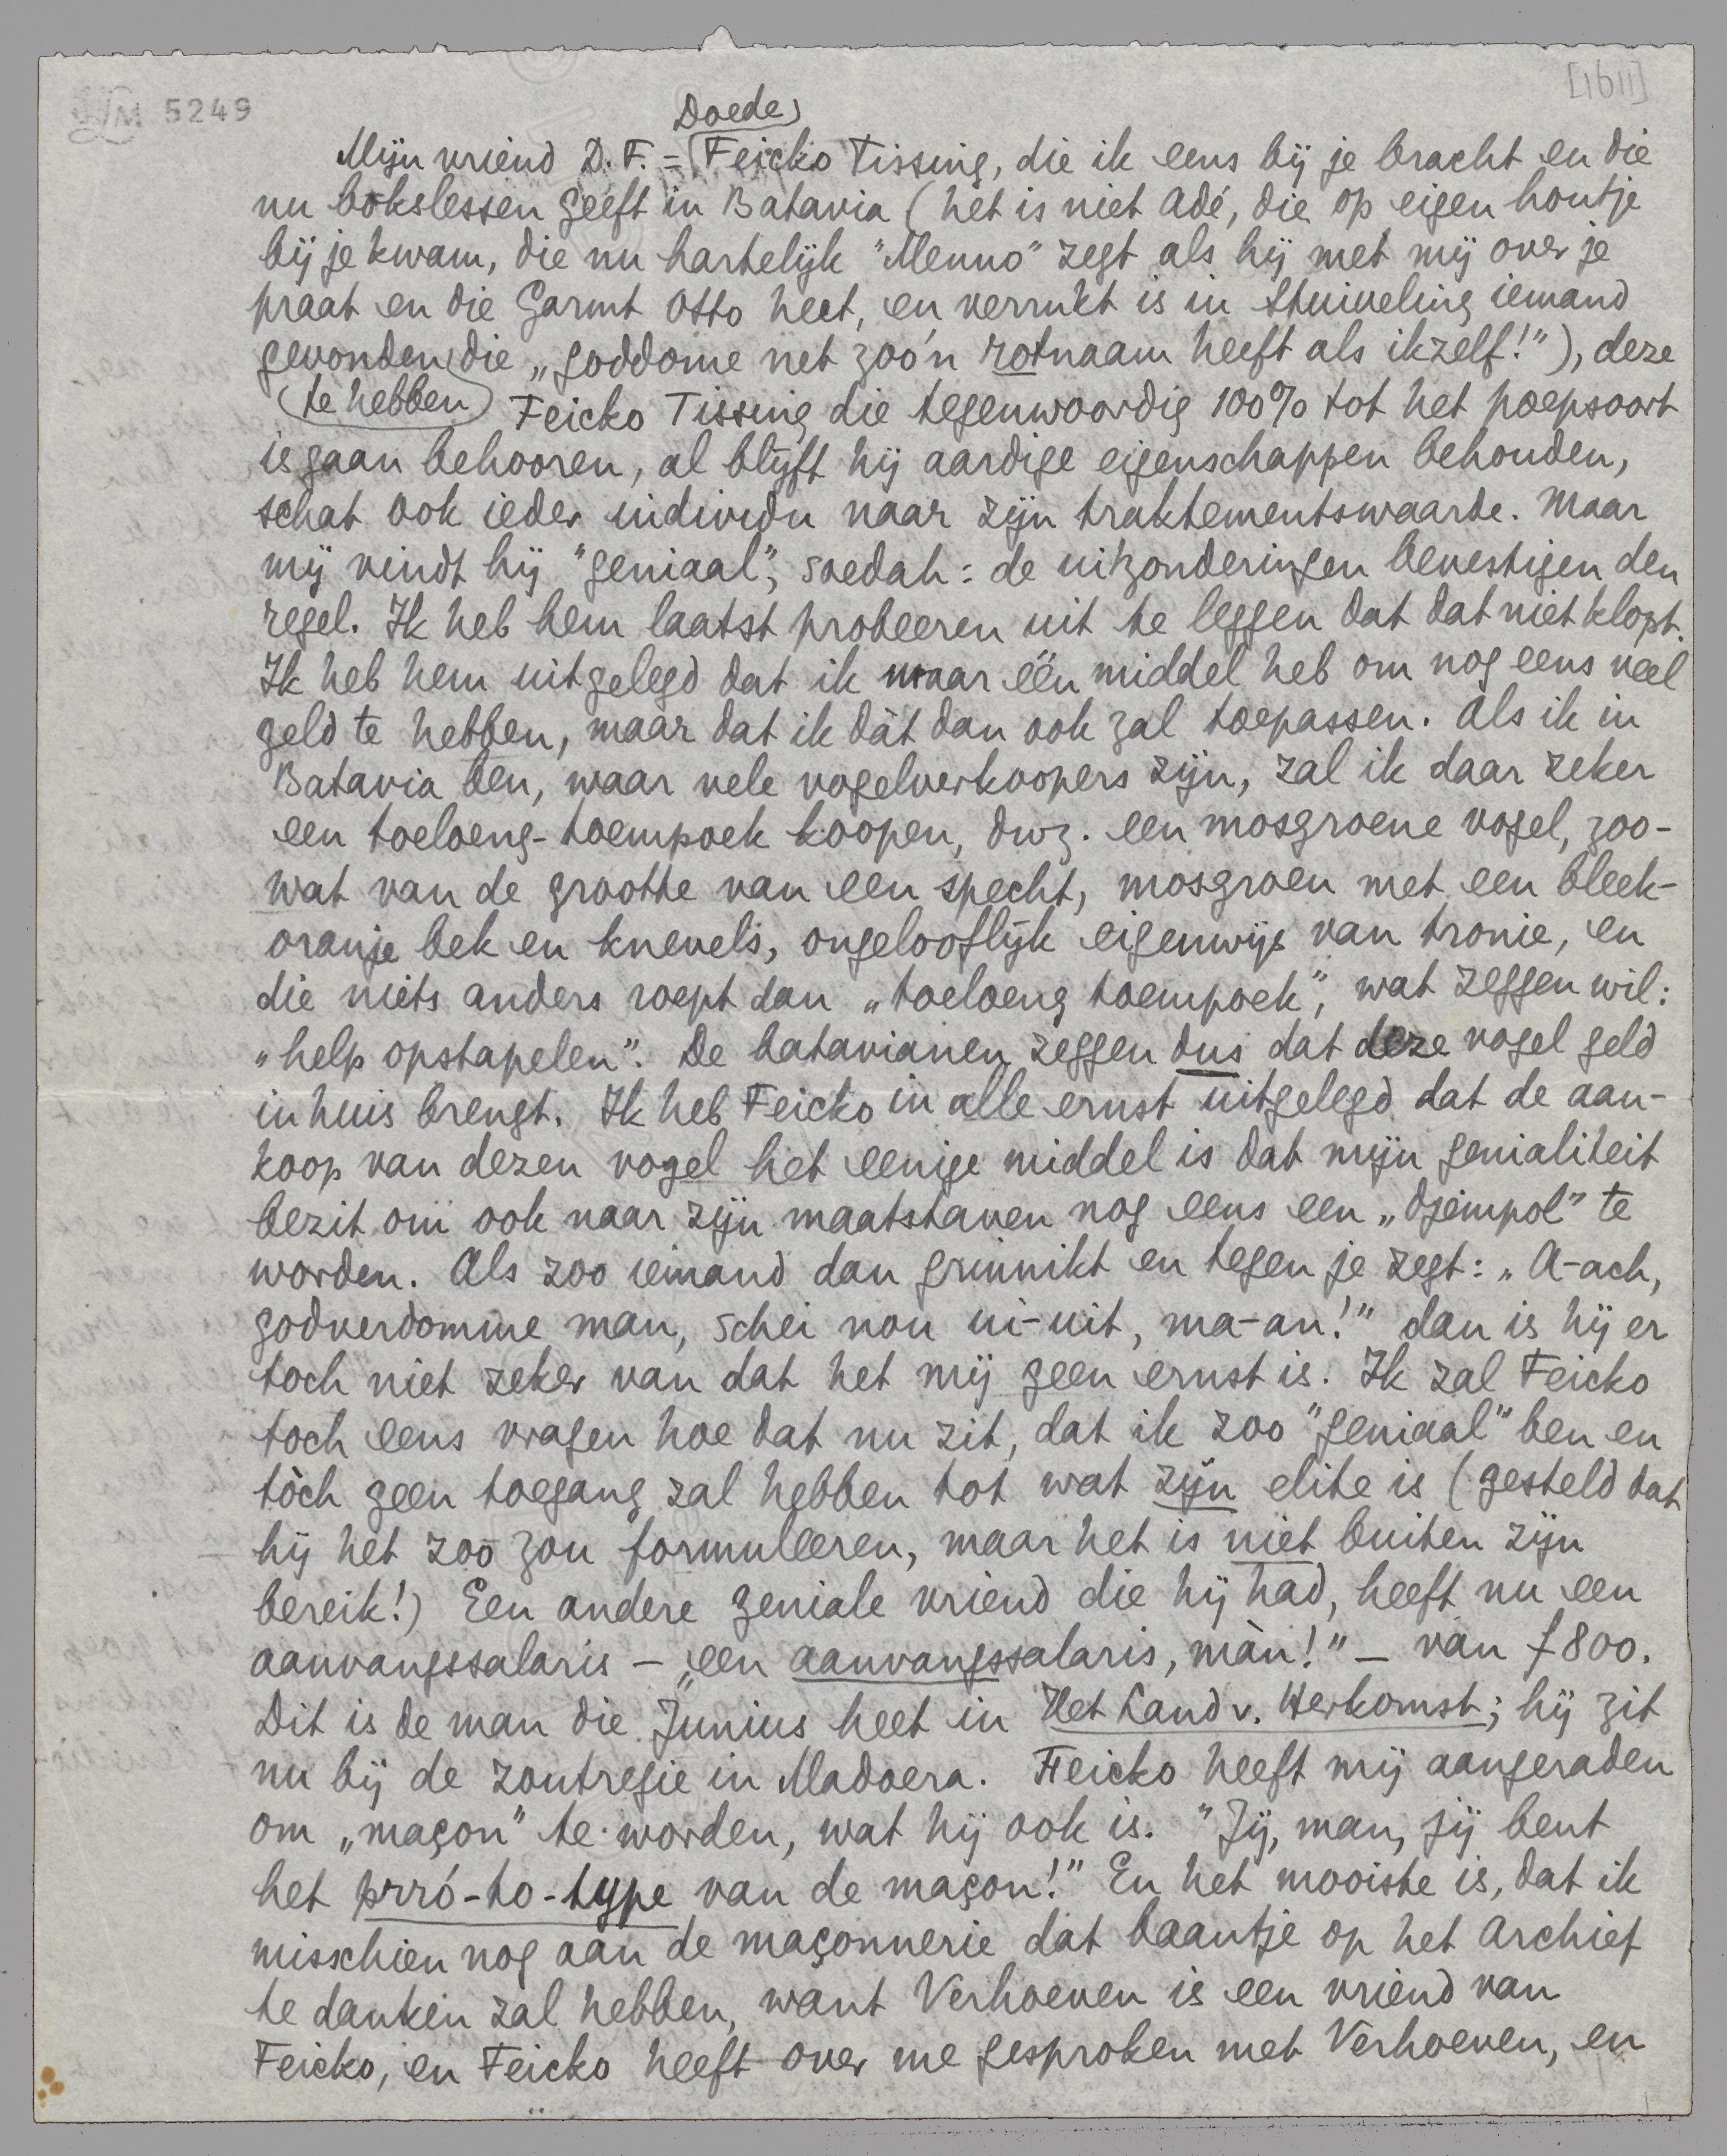 [1611]
LM 5249
Doede
Mijn vriend D.F. = Feicko Tissing, die ik eens bij je bracht en die
nu bokslessen geeft in Batavia (het is niet Adé, die op eigen houtje
bij je kwam, die nu hartelijk "Menno" zegt als hij met mij over je
praat en die Garmt Otto heet, en verrukt is in Stuiveling iemand
gevonden die „goddome net zoo'n rotnaam heeft als ikzelf!"), deze
(te hebben) Feicko Tissing die tegenwoordig 100% tot het poepsoort
is gaan behooren, al blijft hij aardige eigenschappen behouden,
schat ook ieder individu naar zijn traktementswaarde. Maar
mij vindt hij "geniaal", soedah: de uitzonderingen bevestigen den
regel. Ik heb hem laatst probeeren uit te leggen dat dat niet klopt.
Ik heb hem uitgelegd dat ik maar één middel heb om nog eens veel
geld te hebben, maar dat ik dàt dan ook zal toepassen. Als ik in
Batavia ben, waar vele vogelverkoopers zijn, zal ik daar zeker
een toeloeng-toempoek koopen, dwz. een mosgroene vogel, zoo-
wat van de grootte van een specht, mosgroen met een bleek-
oranje bek en knevels, ongelooflijk eigenwijs van tronie, en
die niets anders roept dan „toeloeng toempoek", wat zeggen wil:
„help opstapelen". De batavianen zeggen dus dat deze vogel geld
in huis brengt. Ik heb Feicko in alle ernst uitgelegd dat de aan-
koop van dezen vogel het eenige middel is dat mijn genialiteit
bezit om ook naar zijn maatstaven nog eens een „djempol" te
worden. Als zoo iemand dan grinnikt en tegen je zegt: „A-ach,
godverdomme man, schei nou ui-uit, ma-an!" dan is hij er
toch niet zeker van dat het mij geen ernst is. Ik zal Feicko
toch eens vragen hoe dat nu zit, dat ik zoo "geniaal" ben en
tòch geen toegang zal hebben tot wat zijn elite is (gesteld dat
hij het zoo zou formuleeren, maar het is niet buiten zijn
bereik!) Een andere geniale vriend die hij had, heeft nu een
aanvangssalaris – „een aanvangssalaris, màn!" – van ƒ800.
Dit is de man die Junius heet in Het Land v. Herkomst; hij zit
nu bij de zoutregie in Madoera. Feicko heeft mij aangeraden
om „maçon" te worden, wat hij ook is. "Jij, man, jij bent
het prró-to-type van de maçon!" En het mooiste is, dat ik
misschien nog aan de maçonnerie dat baantje op het Archief
te danken zal hebben, want Verhoeven is een vriend van
Feicko, en Feicko heeft over me gesproken met Verhoeven, en